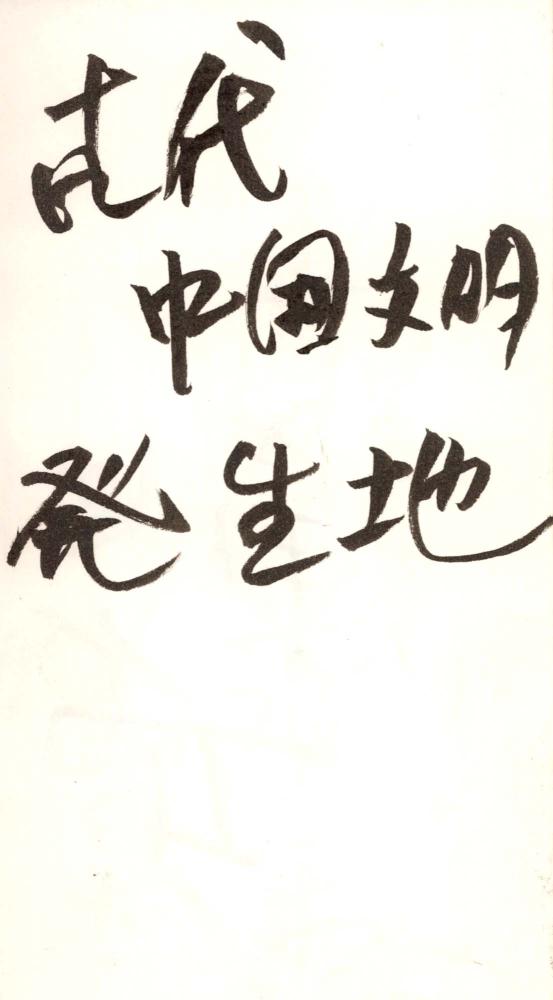 古代
中国文明
発生地